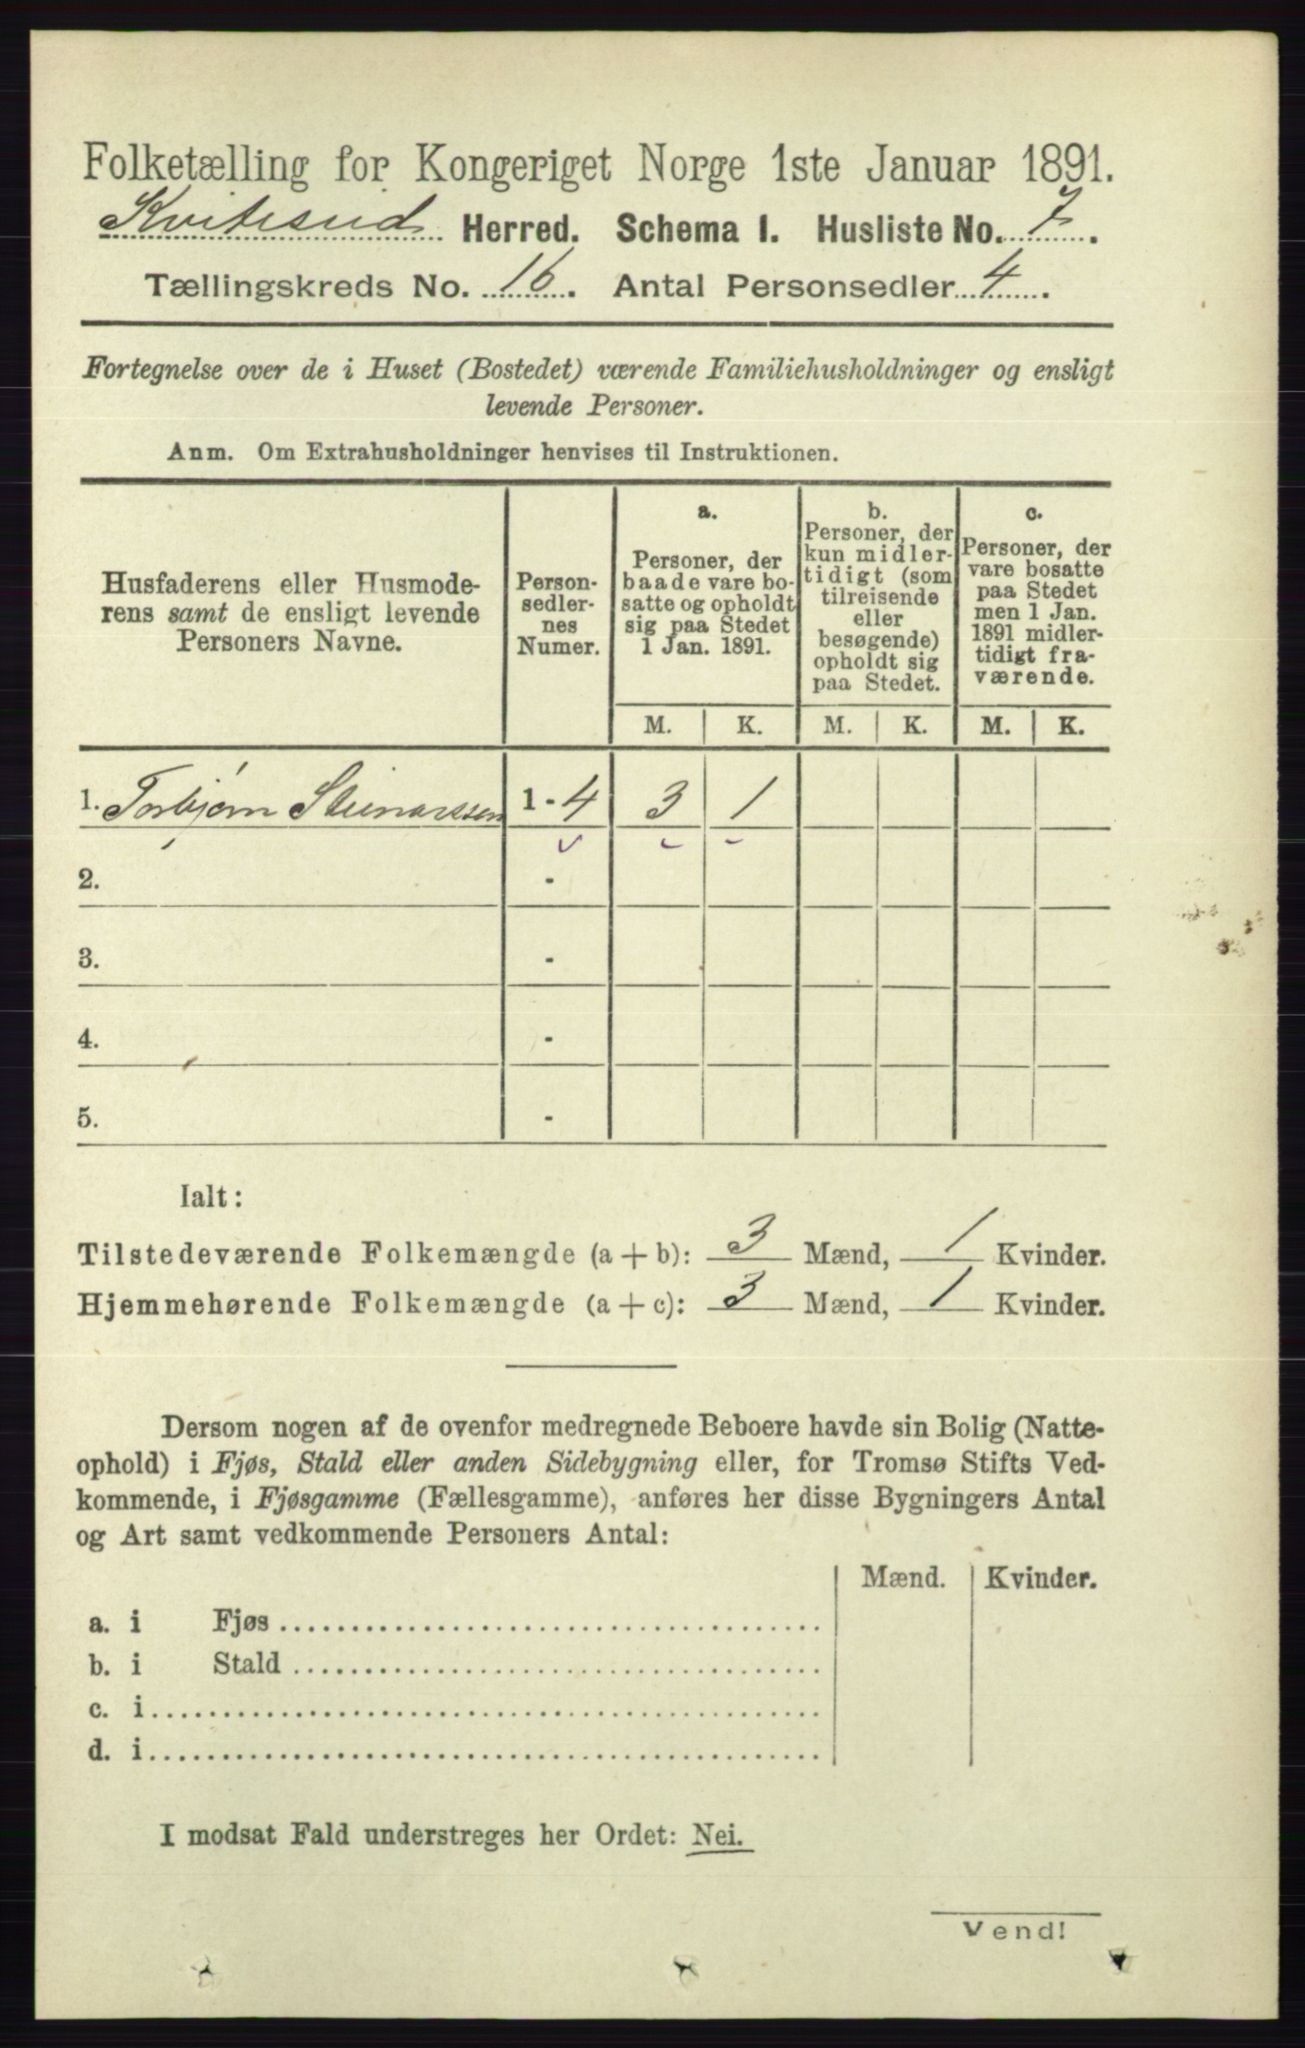 Folketælling for Kongeriget Norge 1ste Januar 1891.
Kvitesud Herred. Schema 1. Husliste No. 7.
Tællingskreds No. 16. Antal Personsedler 4.
Fortegnelse over de i Huset (Bostedet) værende Familiehusholdninger og ensligt
levende Personer.
Anm. Om Extrahusholdninger henvises til Instruktionen.
Husfaderens eller Husmode-
rens samt de ensligt levende
Personers Navne.
Person-
sedler-
nes
Numer.
a.
Personer, der
baade vare bo-
satte og opholdt
sig paa Stedet
1 Jan. 1891.
b.
Personer, der
kun midler-
tidigt (som
tilreisende
eller
besøgende)
opholdt sig
paa Stedet.
c.
Personer, der
vare bosatte
paa Stedet
men 1 Jan.
1891 midler-
tidigt fra-
værende.
M. K. M. K. M. K.
1. Torbjørn Steinarssen 1 - 4 3 1
2. -
3. -
4. -
5. -
Ialt:
Tilstedeværende Folkemængde (a + b): 3 Mænd, 1 Kvinder.
Hjemmehørende Folkemængde (a + c): 3 Mænd, 1 Kvinder.
Dersom nogen af de ovenfor medregnede Beboere havde sin Bolig (Natte-
ophold) i Fjøs, Stald eller anden Sidebygning eller, for Tromsø Stifts Ved-
kommende, i Fjøsgamme (Fællesgamme), anføres her disse Bygningers Antal
og Art samt vedkommende Personers Antal:
Mænd. Kvinder.
a. i Fjøs
b. i Stald
c. i
d. i
I modsat Fald understreges her Ordet: Nei.
Vend!